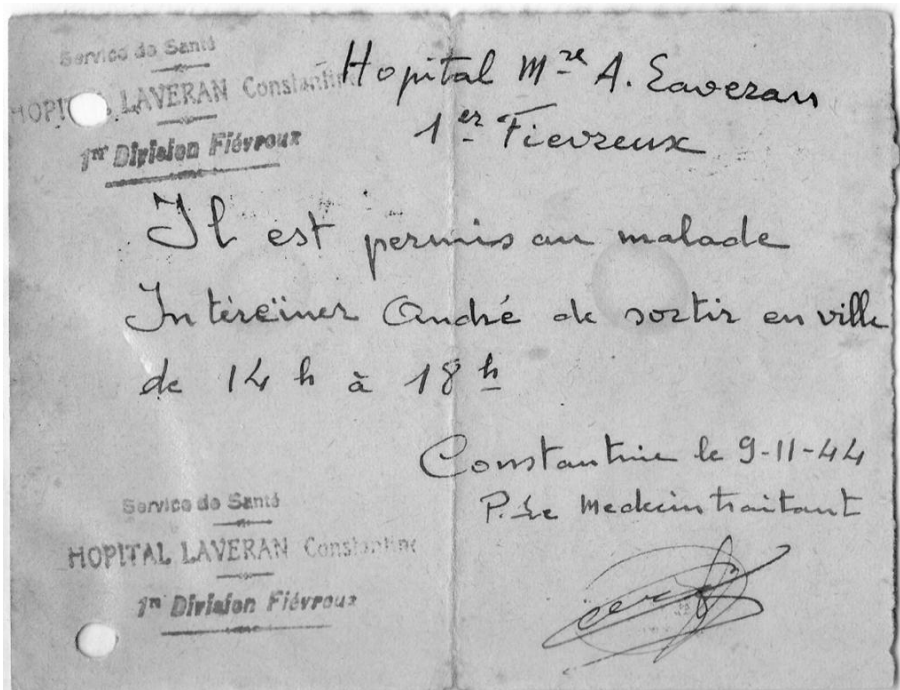 Service de Santé
HOPITAL LAVERAN Constantine
1re Division Fiévreux
Hopital Mre A. Laveran
1er Fievreux
Il est permis au malade
Intèreïner André de sortir en ville
de 14 h à 18 h
Constantine le 9-11-44
P. Le Medecin traitant
Service de Santé
HOPITAL LAVERAN Constantine
1re Division Fiévreux